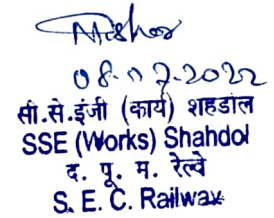 08.07.2022
सी.से.इंजी (कार्य) शहडोल
SSE (Works) Shahdol
द. पू. म. रेल्वे
S. E. C. Railway